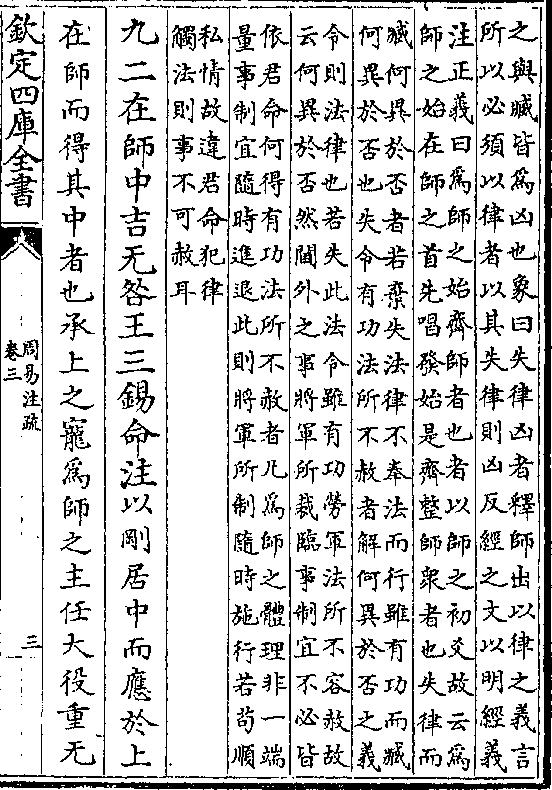 之與臧皆爲凶也象曰失律凶者釋師出以律之義言
所以必須以律者以其失律則凶反經之文以明經義
注正義曰爲師之始齊師者也者以師之初爻故云爲
師之始在師之首先唱發始是齊整師衆者也失律而
臧何異於否者若棄失法律不奉法而行雖有功而臧
何異於否也失令有功法所不赦者解何異於否之義
令則法律也若失此法令雖有功勞軍法所不容赦故
云何異於否然閫外之事將軍所裁臨事制宜不必皆
依君命何得有功法所不赦者凡爲師之體理非一端
量事制宜隨時進退此則將軍所制隨時施行若苟順
私情故違君命犯律
觸法則事不可赦耳
九二在師中吉无咎王三錫命注以剛居中而應於上
在師而得其中者也承上之寵爲師之主任大役重无
欽定四庫全書
周易注疏
卷三
三